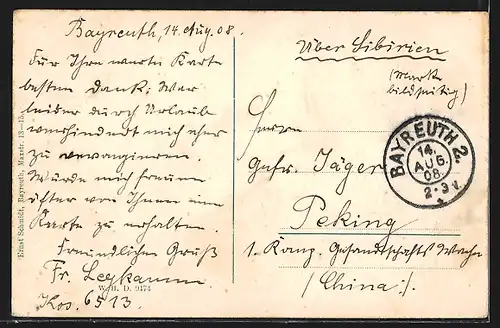 Bayreuth, 14. Aug. 08.
Für Ihre werte Karte
besten Dank; War
leider durch Urlaub
verhindert mich eher
zu revangieren.
Würde mich freuen
öfter von Ihnen eine
Karte zu erhalten.
Freundlichen Gruß
Fr. Legkamm
Kos. 6513
Ernst Schmidt, Bayreuth, Maxstr. 13-15.
W. H. D. 9174
Über Sibirien
(Mark
bildseitig)
Herrn
Gefr. Jäger
Peking
1. Komp. Gesandtschafts Wache
/China/.
BAYREUTH 2.
14.
AUG.
08.
2-3 V.